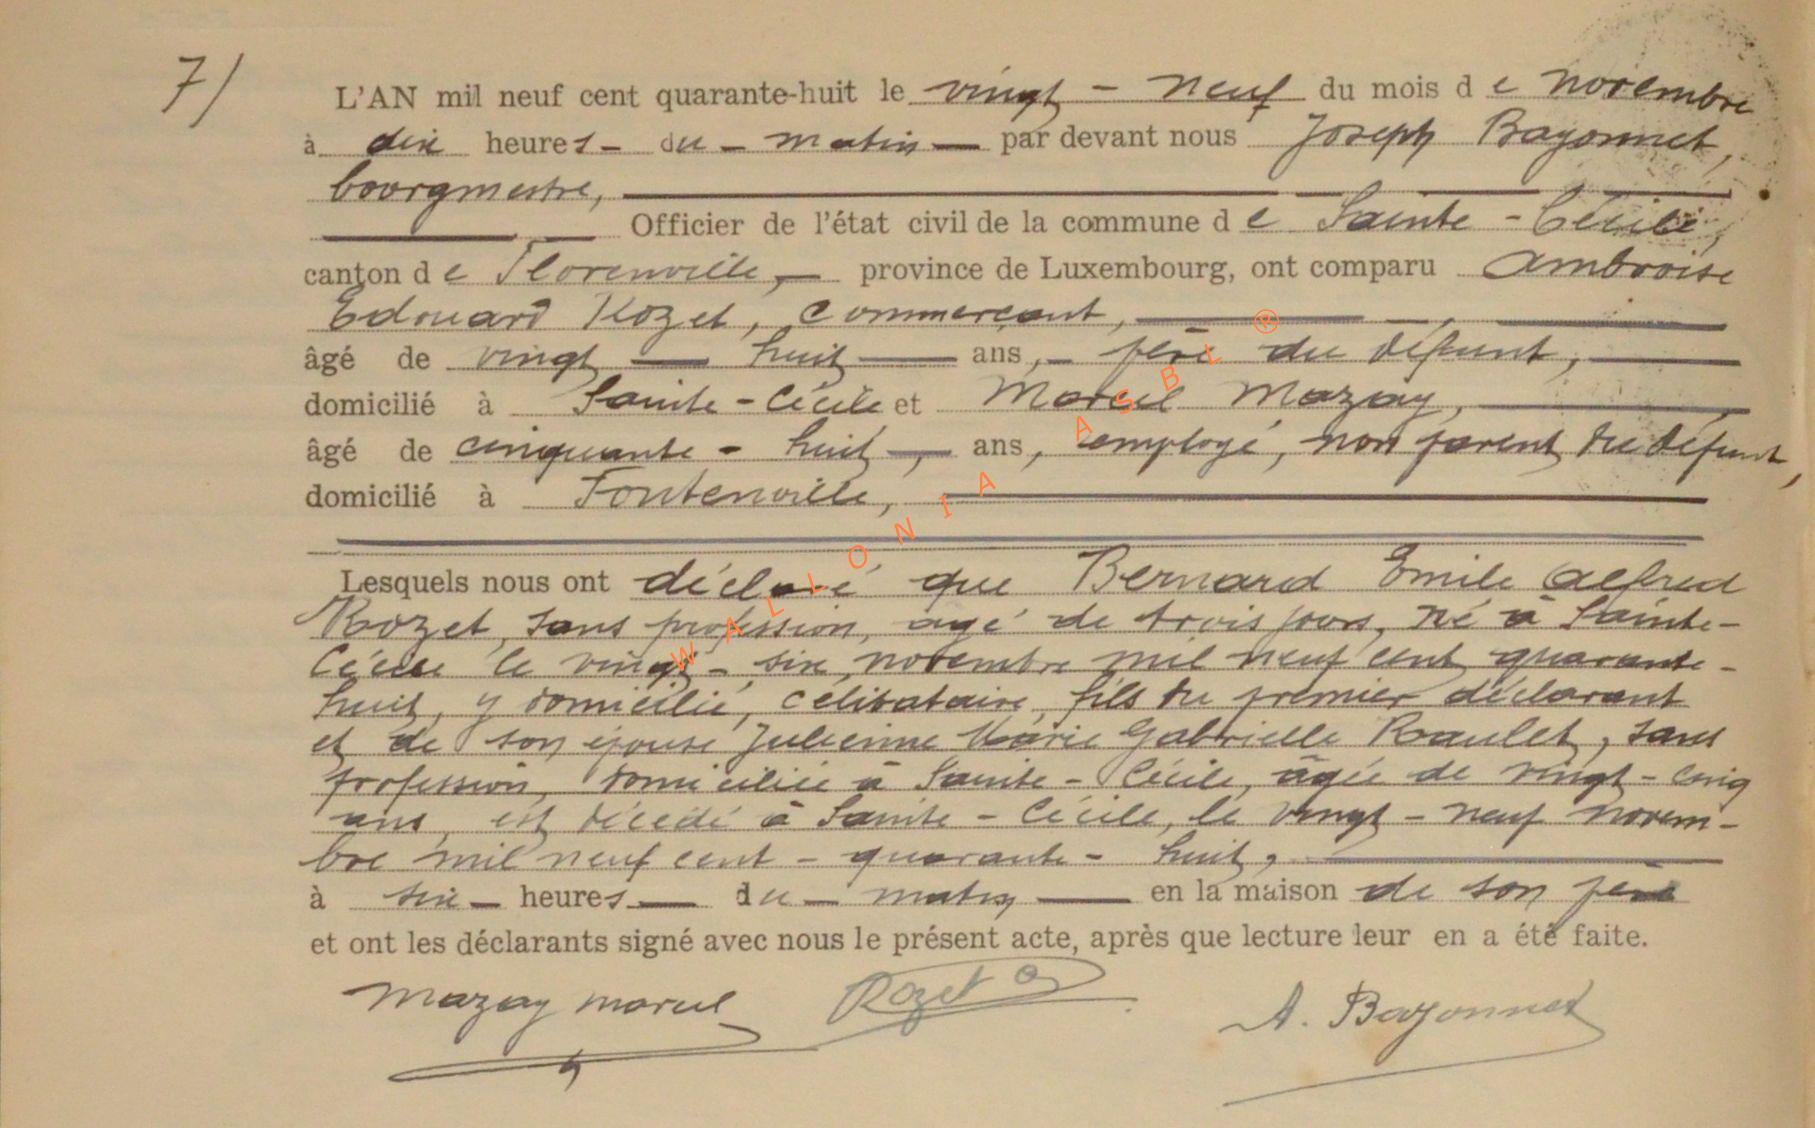 7/
L'AN mil neuf cent quarante-huit le vingt - neuf du mois de novembre
à dix heures - du - matin - par devant nous Joseph Bayonnet,
bourgmestre,
Officier de l'état civil de la commune de Sainte - Cécile,
canton de Florenville, province de Luxembourg, ont comparu Ambroise
Edouard Rozet, commerçant,
âgé de vingt huit ans, père du défunt,
domicilié à Sainte - Cécile et Marcel Mazay,
âgé de cinquante - huit, ans, employé, non parent du défunt,
domicilié à Fontenoille,
Lesquels nous ont déclaré que Bernard Emile Alfred
Rozet, sans profession, agé de trois jours, né à Sainte-
Cécile le vingt - six novembre mil neuf cent quarante-
huit, y domicilié, célibataire, fils du premier déclarant
et de son épouse Julienne Marie Gabrielle Raulet, sans
profession, domiciliée à Sainte - Cécile, âgée de vingt - cinq
ans, est décédé à Sainte - Cécile, le vingt - neuf novem-
bre mil neuf cent - quarante - huit,
à six - heures du - matin en la maison de son père
et ont les déclarants signé avec nous le présent acte, après que lecture leur en a été faite.
Mazay Marcel Rozet A. Bayonnet
WALLONIA ASBL ®